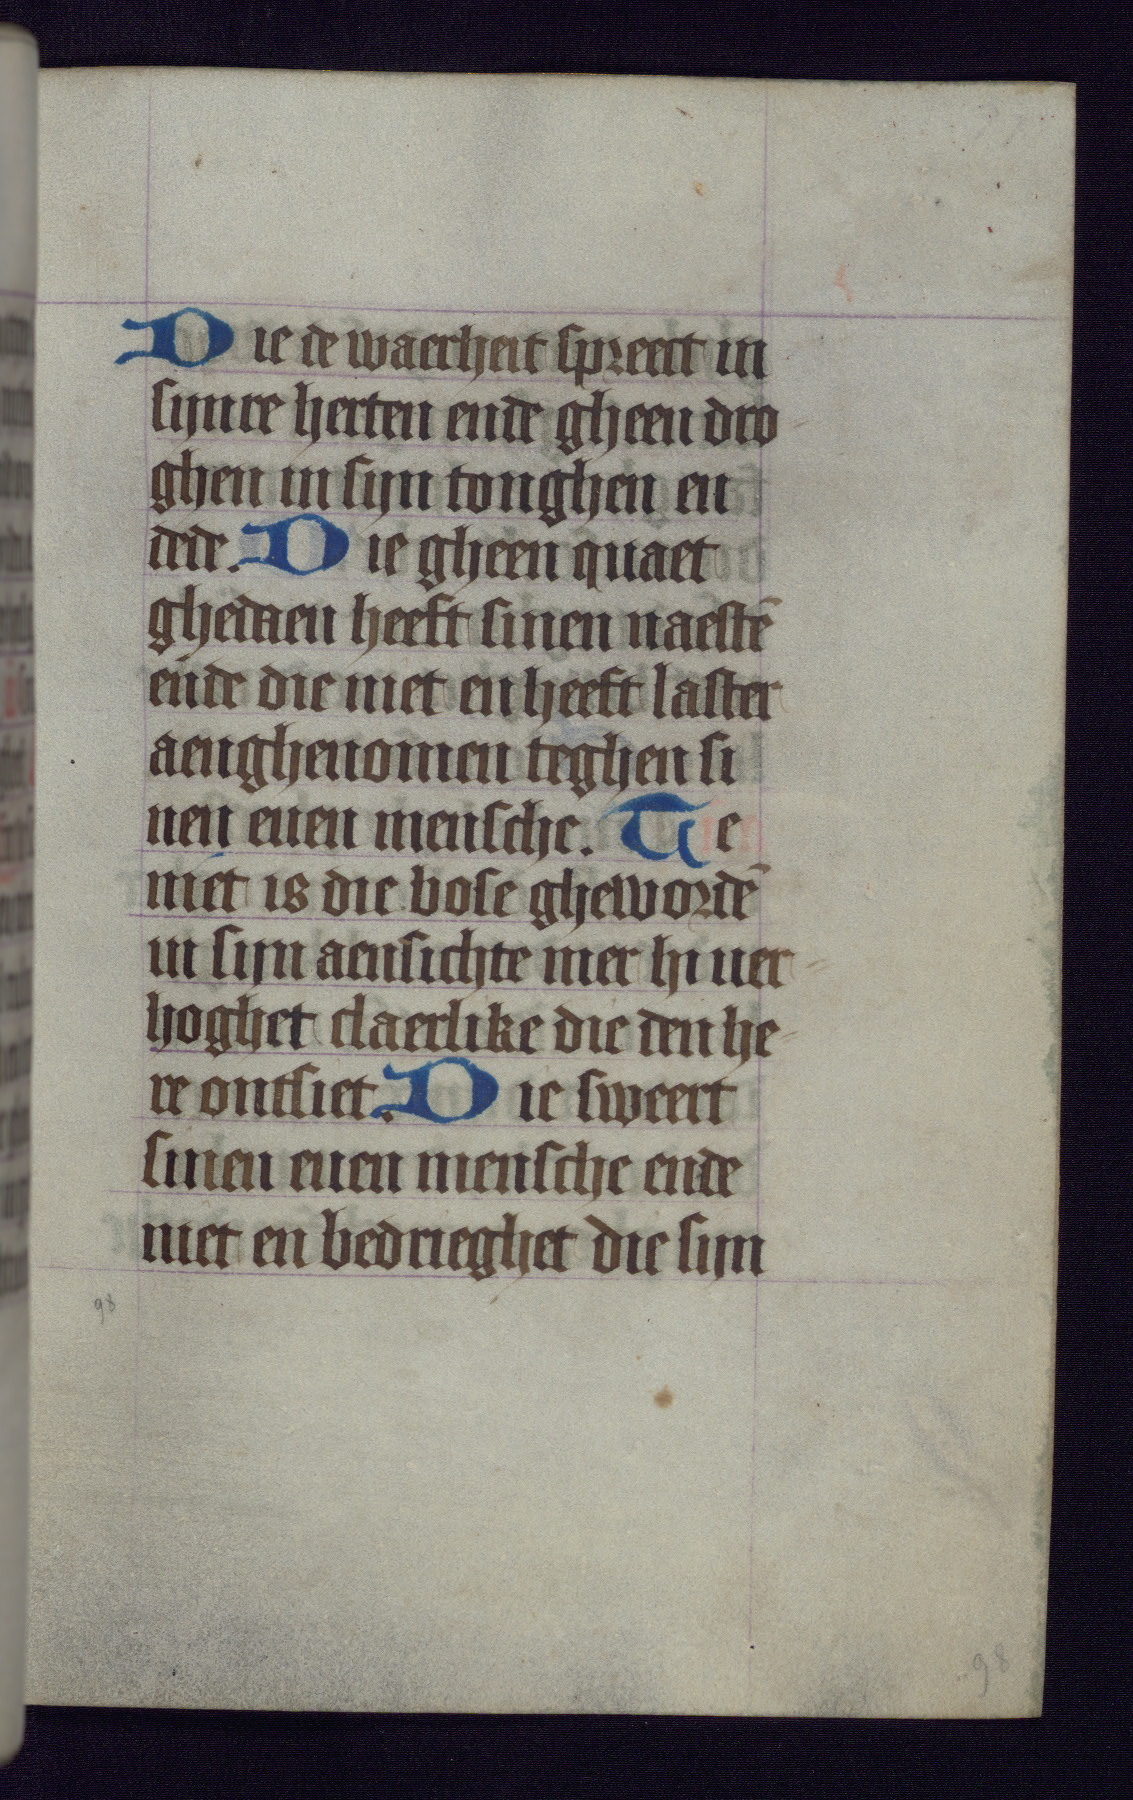 Die de waerheit spreect in
sijnre herten ende gheen dro
ghen in sijn tonghen en
dede. Die gheen quaet
ghedaen heeft sinen naestē
ende die niet en heeft laster
aenghenomen teghen si
nen euen mensche. Te
niet is die bose ghewordē
in sijn aensichte mer hi ver
hoghet claerlike die den he
re ontsiet. Die sweert
sinen euen mensche ende
niet en bedrieghet die sijn
98
98